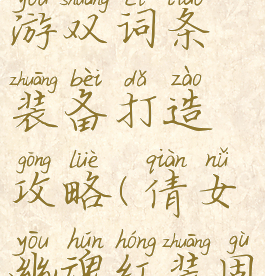 yóu shuāng cí tiáo
游双词条
zhuāng bèi dǎ zào
装备打造
gōng lüè qiàn nǚ
攻略(倩女
yōu hún hóng zhuāng gù
幽魂红装固